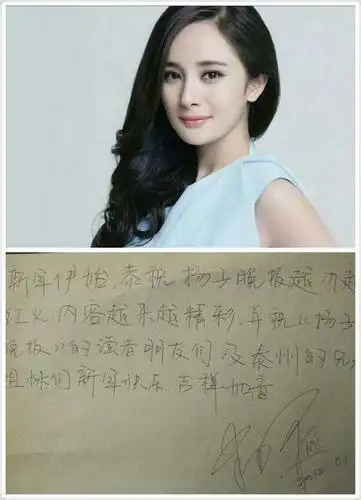 新年伊始,恭祝扬子晚报越办越
红火,内容越来越精彩,并祝《扬子
晚报》的读者朋友们及泰州的兄弟
姐妹们新年快乐 吉祥如意